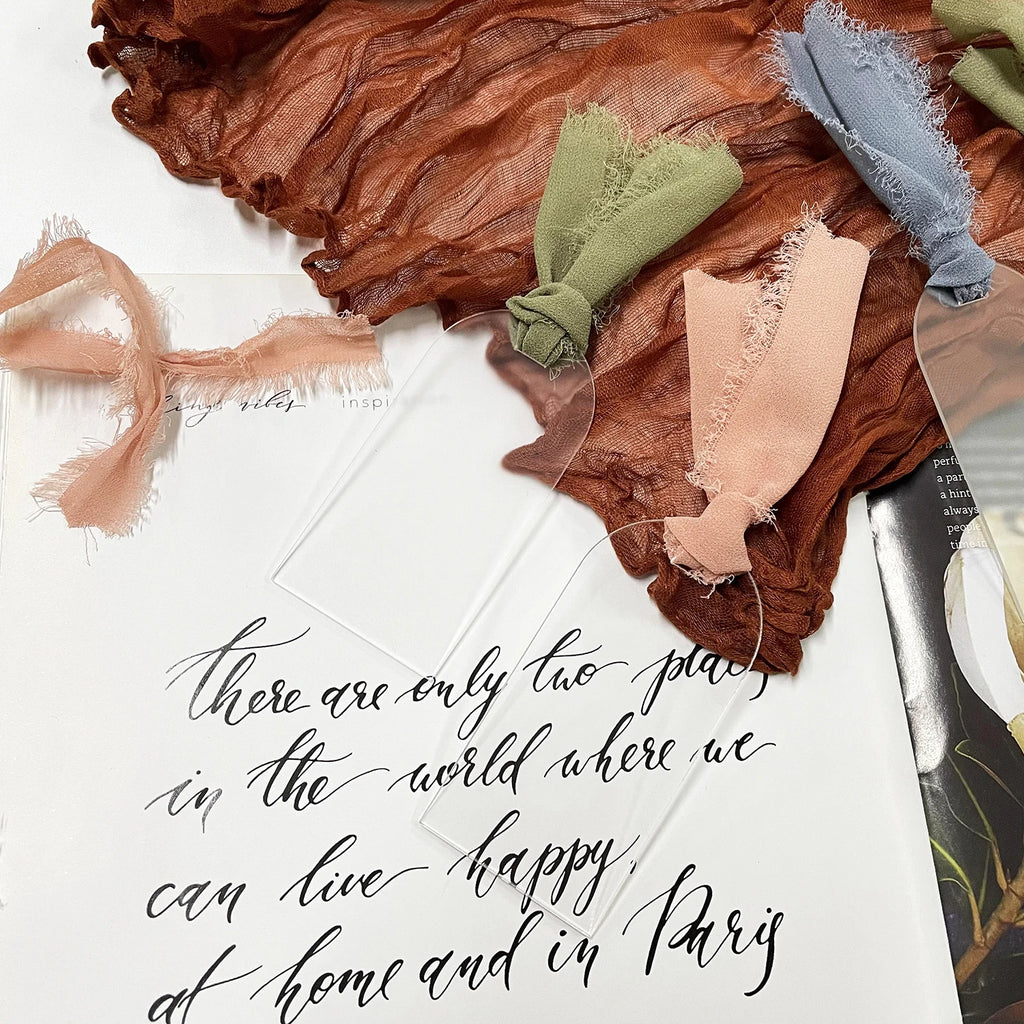 vibes inspi
there are only two plac
in the world where we
can live happy,
at home and in Paris
perfu
a par
a hint
always
people
time in